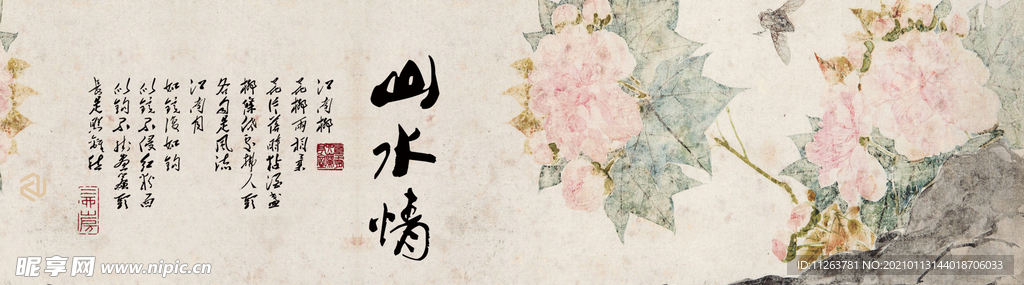 山水情
江南柳
花柳兩相柔
花片落時黏酒盞
柳條低處拂人頭
各自是風流
江南月
如鏡復如鈎
似鏡不侵紅粉面
似鈎不挂畫簾頭
長是照離愁
昵享网 www.nipic.cn
ID:11263781 NO:20210113144018706033